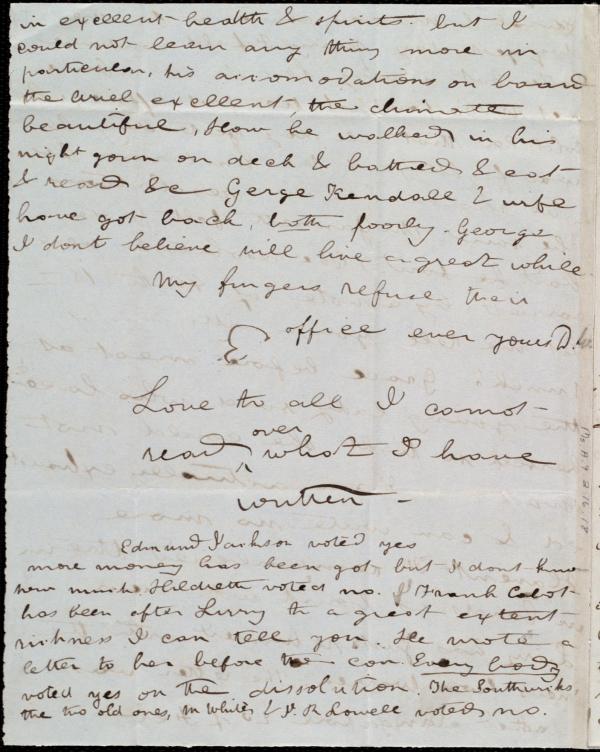 in excellent health & spirits but I
could not learn any thing more in
particular, his accomodations on board
the Ariel excellent, the climate
beautiful, How he walked in his
night gown on deck & bathed & eat
& read &c Gerge Kendall & wife
have got back, both poorly. George
I dont believe will live a great while.
My fingers refuse their
office ever yours D.
Love to all I cannot
read over what I have
written –
Edmund Jackson voted yes
more money has been got but I dont know
how much Hildreth voted no. Frank Cabot
has been after Lizzy to a great extent
richness I can tell you. He wrote a
letter to her before the con. Every body
voted yes on the dissolution. The Southwicks,
the two old ones, M White & J. R Lowell voted no.